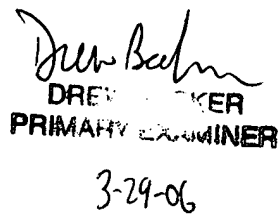 Drew
DRE KER
PRIMARY EXAMINER
3-29-06